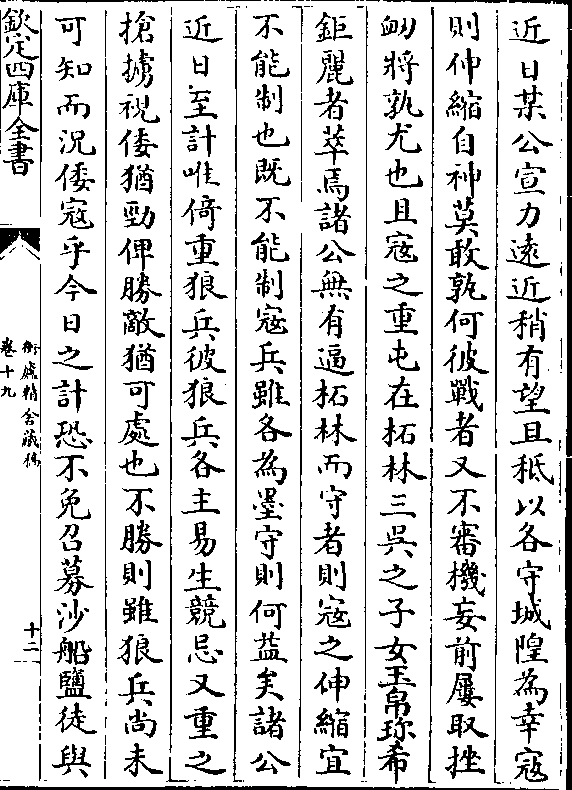 近日某公宣力遠近稍有望且秪以各守城隍為幸寇
則伸縮自神莫敢孰何彼戰者又不審機妄前屢取挫
衂將孰尤也且寇之重屯在柘林三吳之子女玉帛珍希
鉅麗者萃焉諸公無有逼柘林而守者則寇之伸縮宜
不能制也既不能制寇兵雖各為墨守則何益矣諸公
近日至計唯倚重狼兵彼狼兵各主易生競忌又重之
搶擄視倭猶勁俾勝敵猶可處也不勝則雖狼兵尚未
可知而況倭寇乎今日之計恐不免召募沙船鹽徒與
欽定四庫全書
衡廬精舍藏稿
卷十九
十二